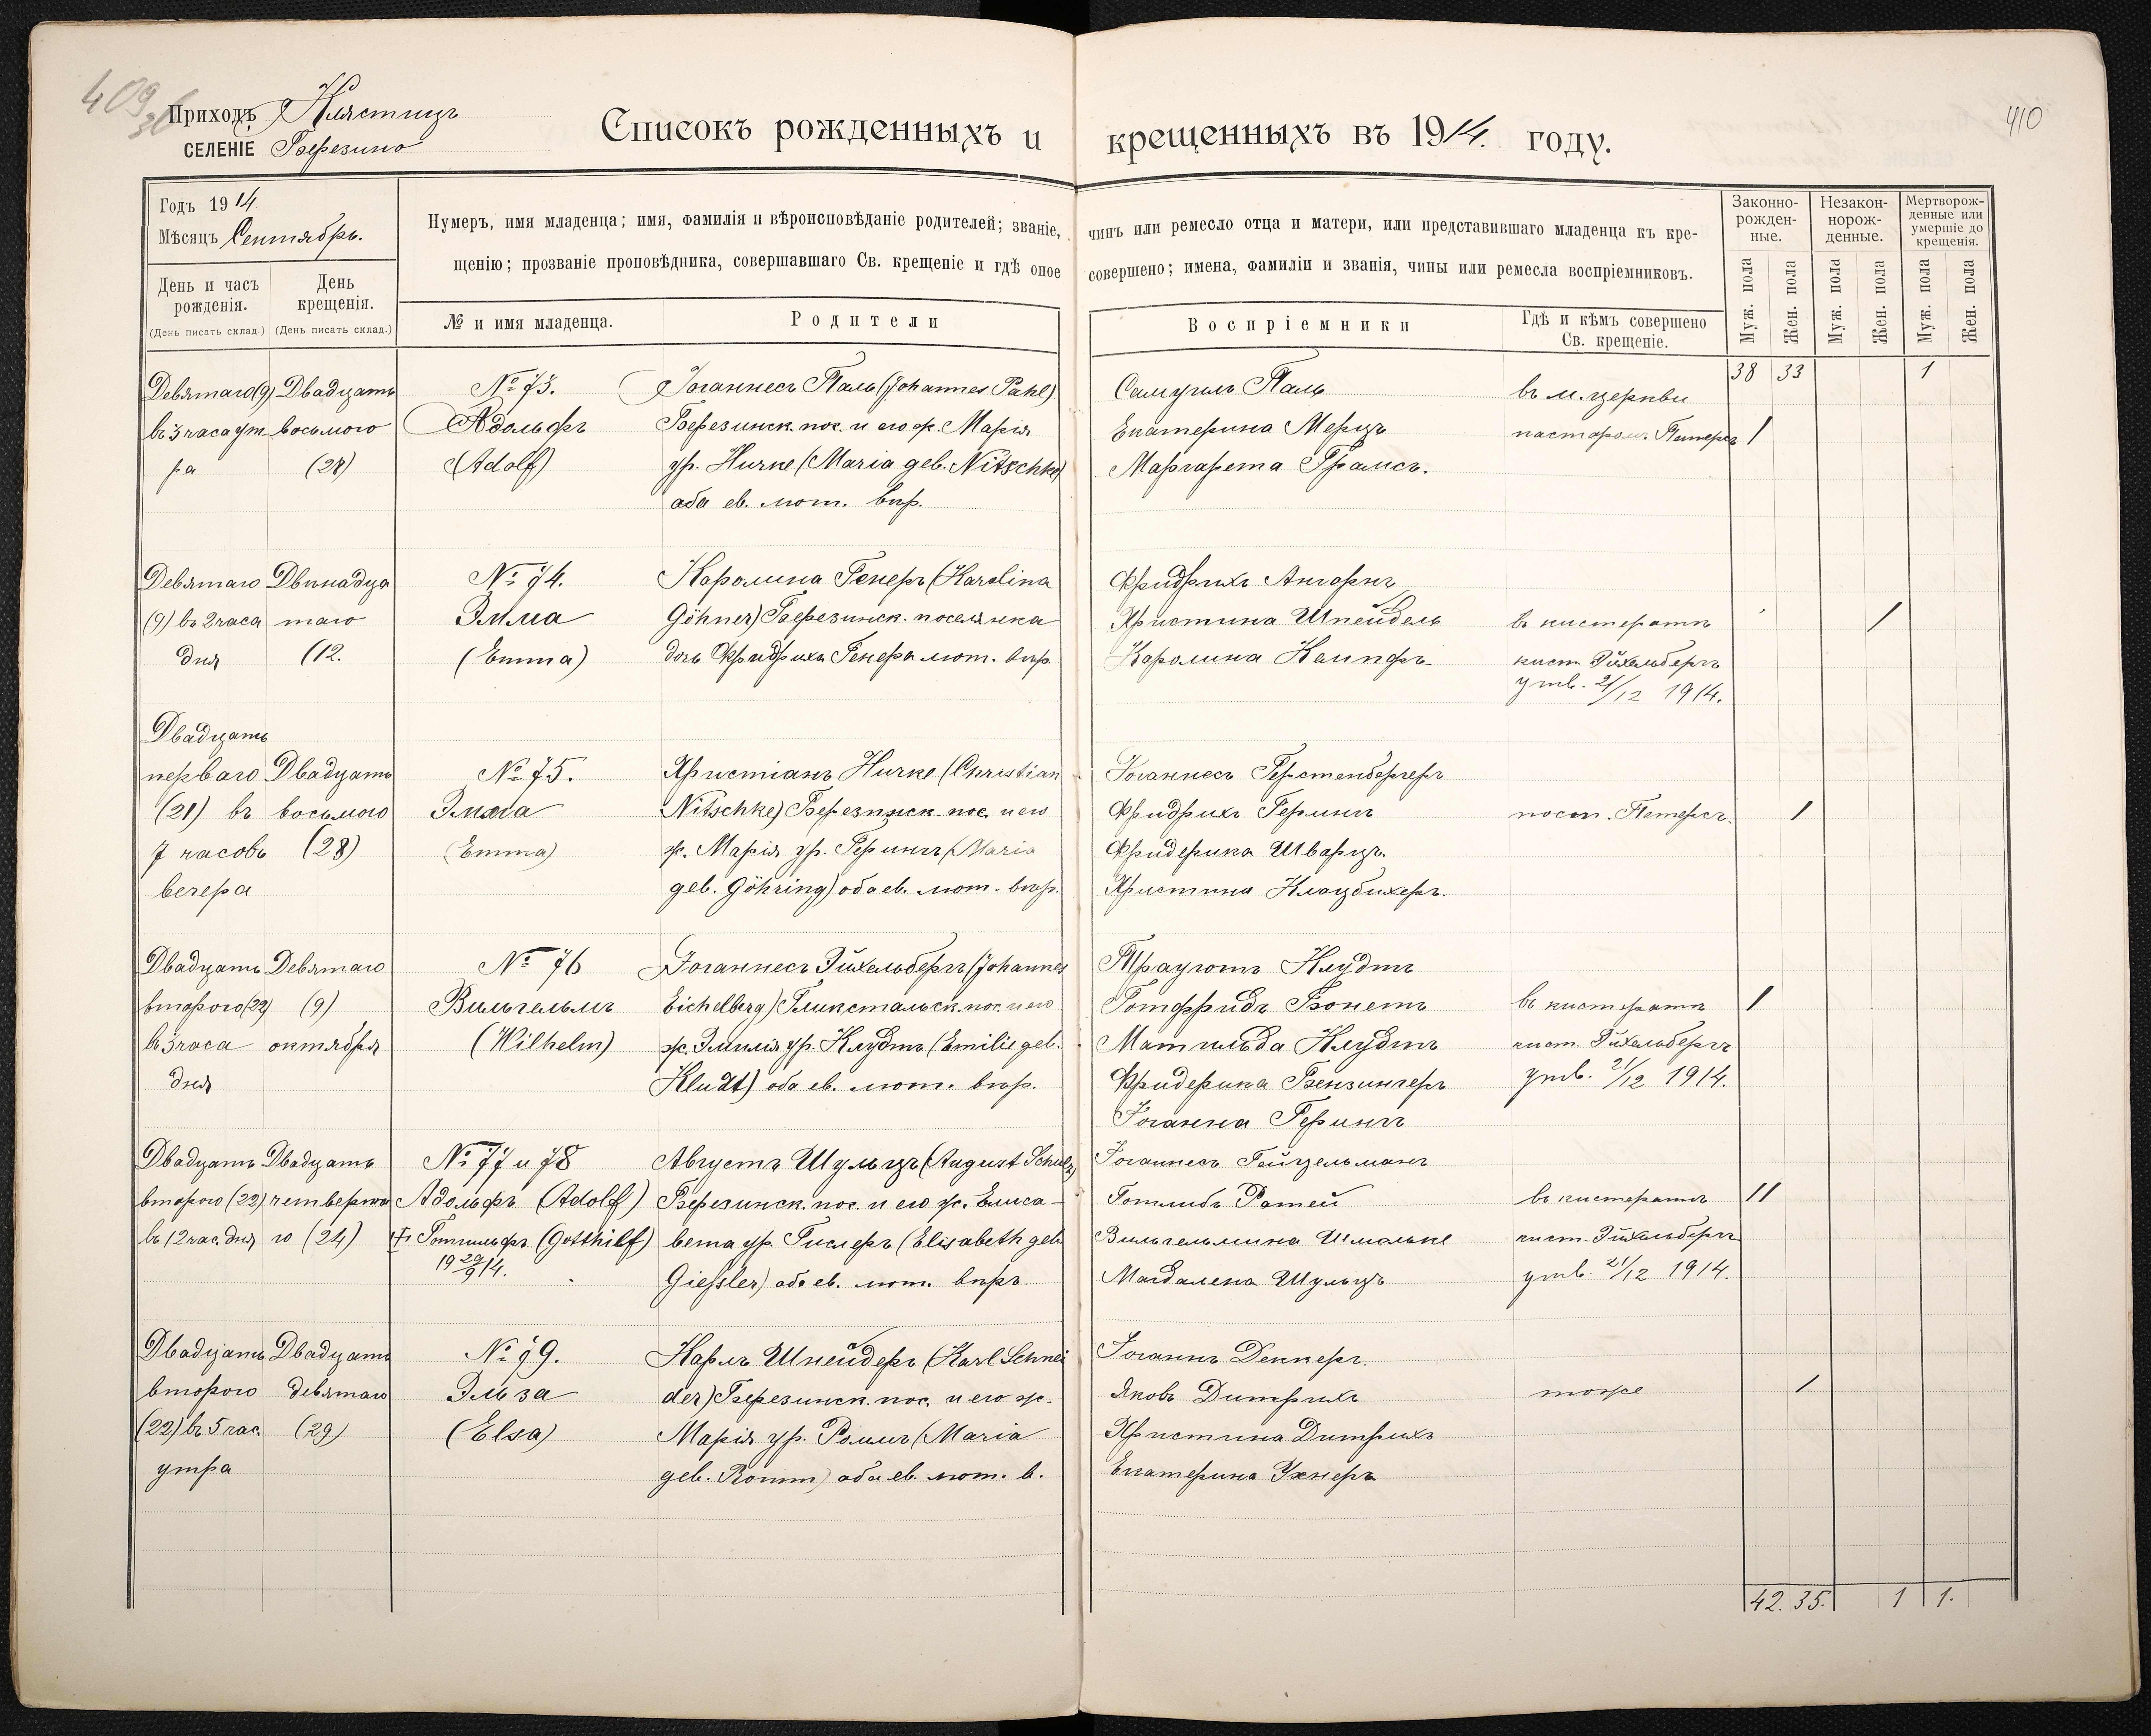 409
410
Приходъ Клястицъ
СЕЛЕНІЕ Березино
Списокъ рожденныхъ и крещенныхъ въ 1914. году.
Годъ 1914
Мѣсяцъ Сентябрь.
День и часъ рожденія.
(День писать склад.)
День крещенія.
(День писать склад.)
Нумеръ, имя младенца; имя, фамилія и вѣроисповѣданіе родителей; званіе, чинъ или ремесло отца и матери, или представившаго младенца къ кре-
щенію; прозваніе проповѣдника, совершавшаго Св. крещеніе и гдѣ оное совершено; имена, фамиліи и званія, чины или ремесла воспріемниковъ.
№ и имя младенца.
Родители
Воспріемники
Гдѣ и кѣмъ совершено
Св. крещеніе.
Законно-
рожден-
ные.
Незакон-
норож-
денные.
Мертворож-
денные или
умершіе до
крещенія.
Муж. пола
Жен. пола
Муж. пола
Жен. пола
Муж. пола
Жен. пола
38 33 1
Девятаго (9)
въ 3 часа ут
ра
Двадцать
восьмого
(28)
№ 73.
Адольфъ
(Adolf)
Іоганнесъ Паль (Johannes Pahl)
Березинск. пос. и его ж. Марія
ур. Ничке (Maria geb. Nitschke)
оба ев. лют. вѣр.
Самуилъ Паль
Екатерина Мерцъ
Маргарета Грамсъ.
въ м. церкви
пасторъ. Петерсъ
1
Девятаго
(9) въ 2 часа
дня
Двѣнадца
таго
(12.
№ 74.
Эмма
(Emma)
Каролина Генеръ (Karolina
Göhner) Березинск. поселянка
дочь Фридриха Генера лют. вѣр.
Фридрихъ
Христина Шпейдель
Каролина Кампфъ.
въ кистератѣ
кист. Эйхельбергъ
утв. 21/12 1914.
1
Двадцать
перваго
(21) въ
7 часовъ
вечера
Двадцать
восьмого
(28)
№ 75.
Эмма
(Emma)
Христіанъ Ничке (Christian
Nitschke) Березинск. пос. и его
ж. Марія ур. Герингъ (Maria
geb. Göhring) оба ев. лют. вѣр.
Іоганнесъ Герстенбергеръ
Фридрихъ Герингъ
Фридерика Шварцъ.
Христина Клоцбихеръ.
паст. Петерсъ.
1
Двадцать
второго (22)
въ 3 часа
дня
Девятаго
(9)
октября
№ 76
Вильгельмъ
(Wilhelm)
Іоганнесъ Эйхельбергъ (Johannes
Eichelberg) Гликстальск. пос. и его
ж. Эмилія ур. Клудтъ (Emilie geb.
Kludt) оба ев. лют. вѣр.
Трауготъ Клудтъ
Готфридъ Бонетъ
Матильда Клудтъ
Фридерика Бензингеръ
Іоганна Герингъ
въ кистератѣ
кист. Эйхельбергъ
утв. 21/12 1914.
1
Двадцать
второго (22)
въ 12 час. дня
Двадцать
четверта
го (24)
№ 77 и 78
Адольфъ (Adolf)
† Готгильфъ (Gotthilf)
19 29/9 14.
Августъ Шульцъ (August Schulz)
Березинск. пос. и его ж. Елиса-
бета ур. Гислеръ (Elisabeth geb.
Giessler) оба ев. лют. вѣръ.
Іоганнесъ Гейцельманъ
Готлибъ Ратей
Вильгельмина Шмальке
Магдалена Шульцъ
въ кистератѣ
кист. Эйхельбергъ
утв. 21/12 1914.
11
Двадцать
второго
(22) въ 5 час.
утра
Двадцать
девятаго
(29)
№ 79.
Эльза
(Elsa)
Карлъ Шнейдеръ (Karl Schnei
der) Березинск. пос. и его ж.
Марія ур. Роммъ (Maria
geb. Romm) оба ев. лют. в.
Іоганнъ Деккеръ.
Яковъ Дитрихъ
Христина Дитрихъ
Екатерина Ухнеръ
тоже
1
42. 35. 1 1.